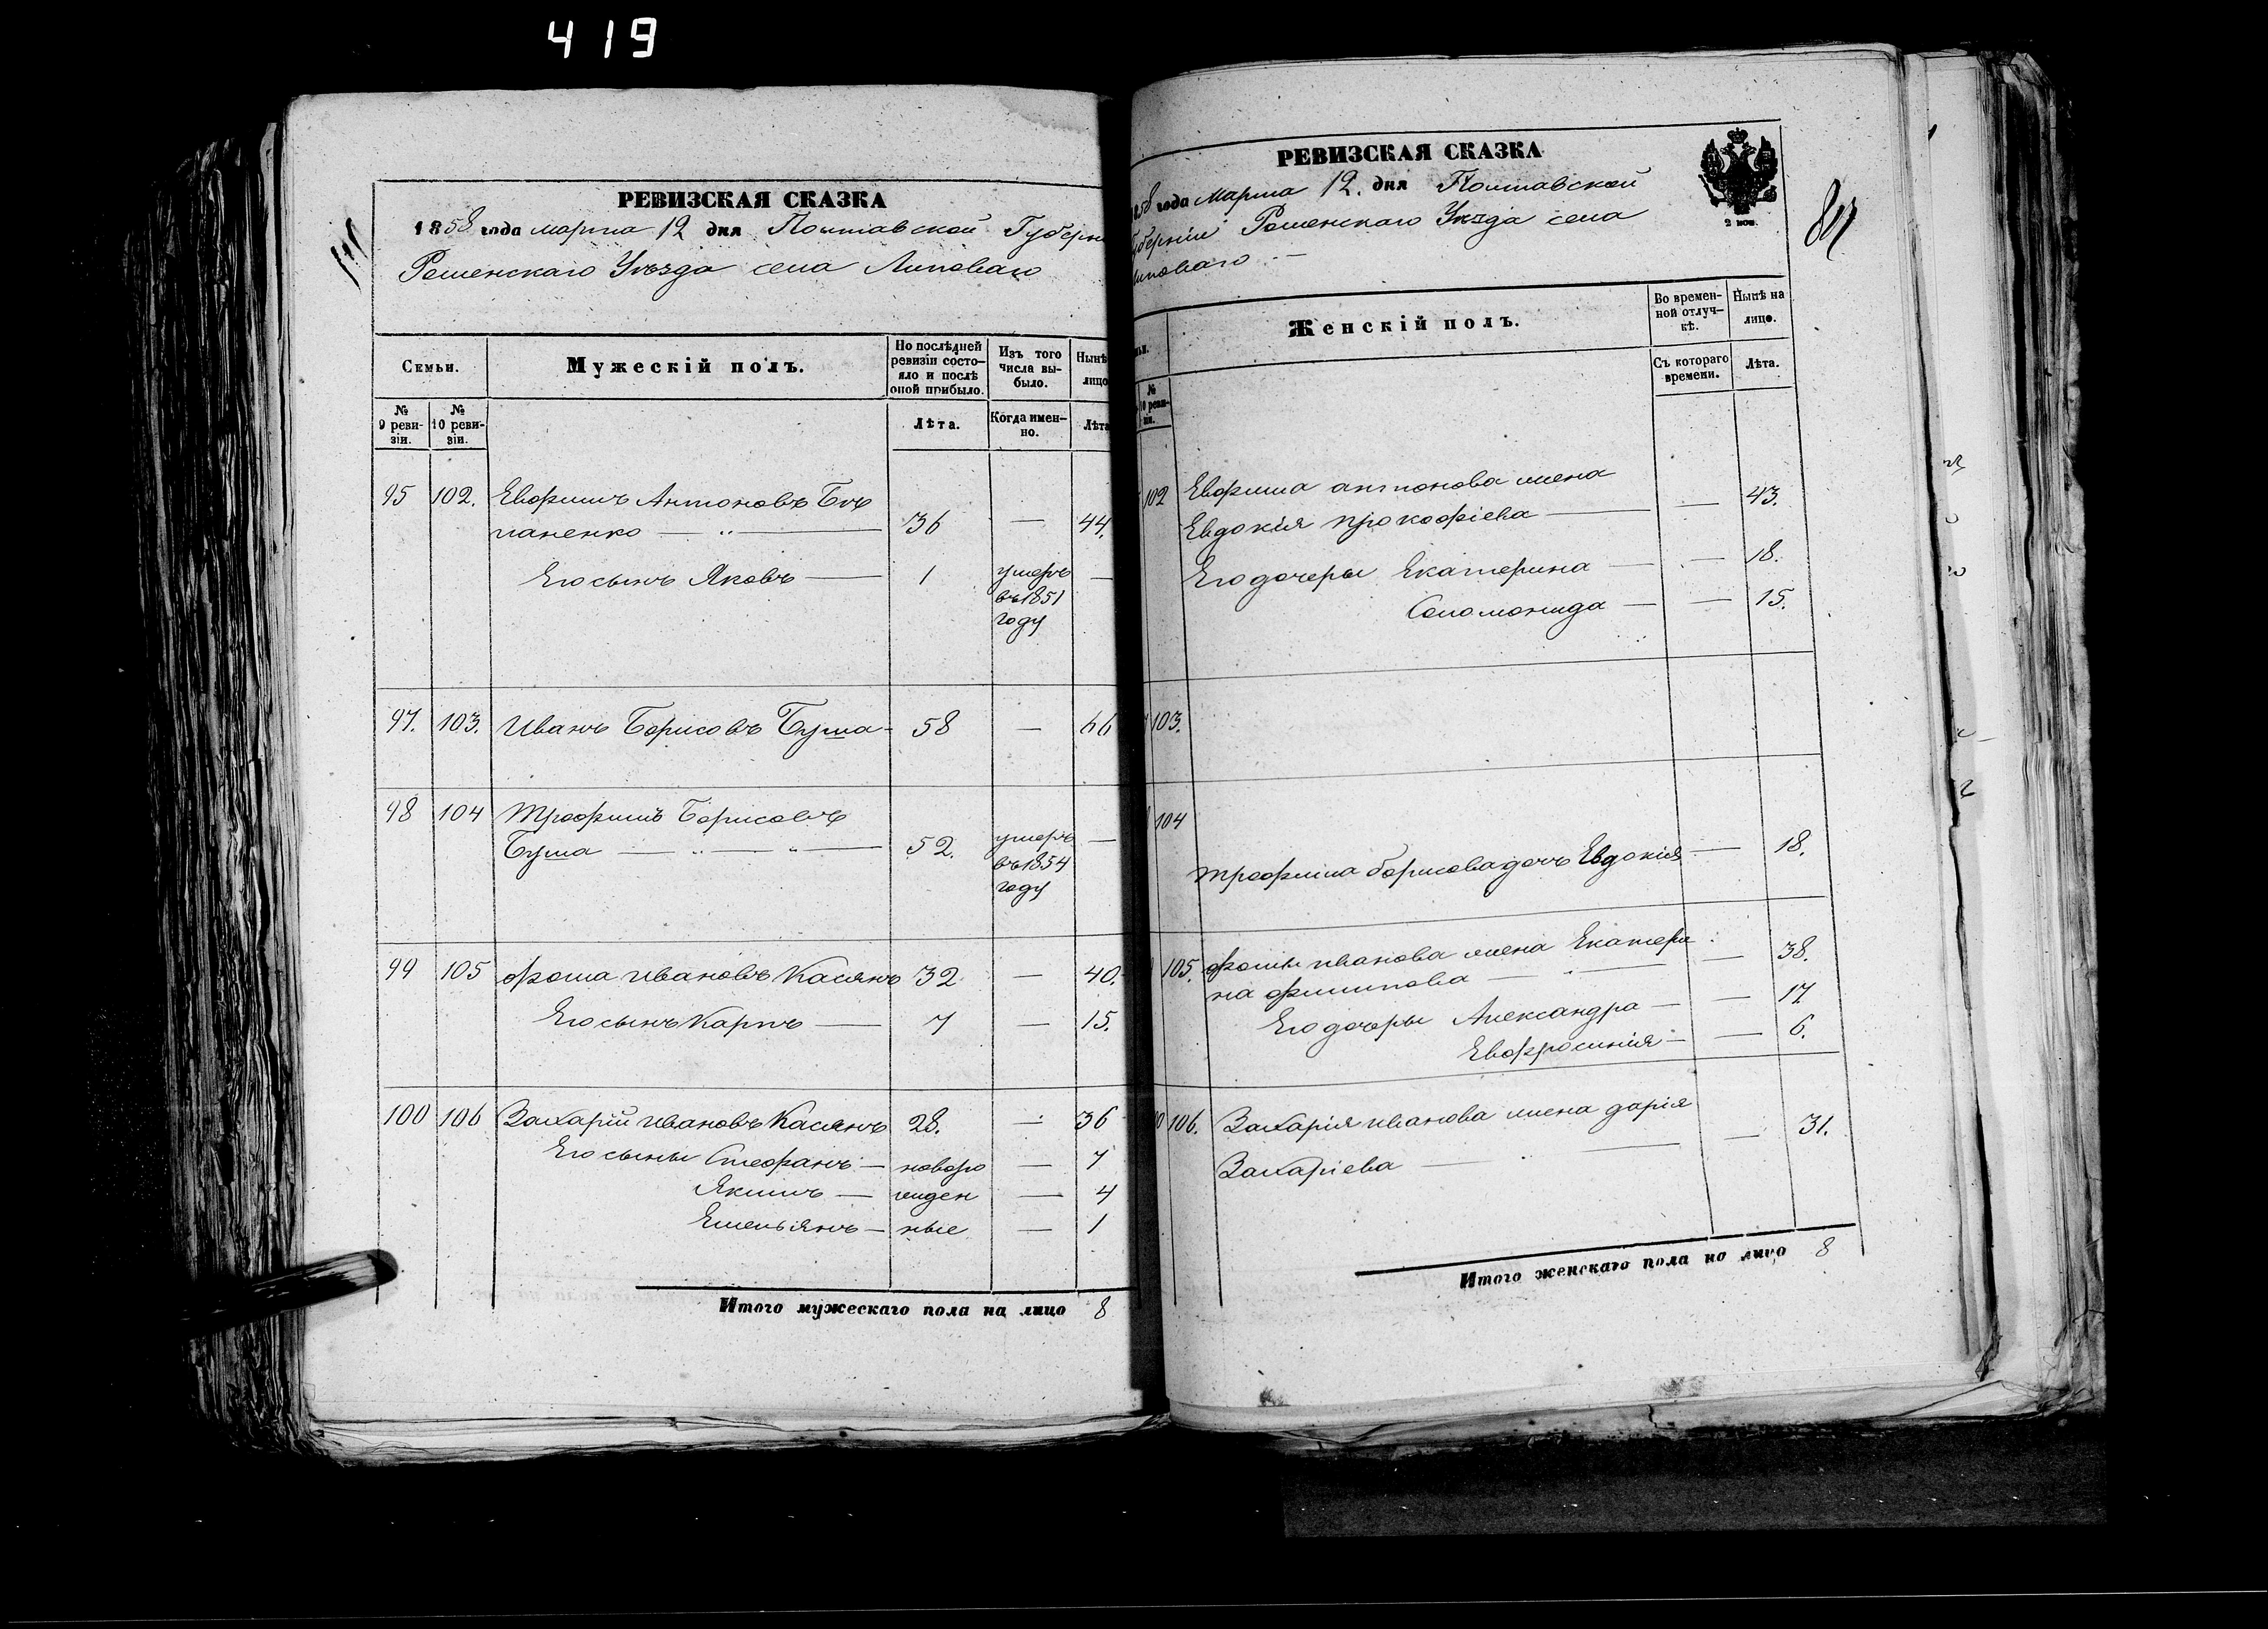 419
РЕВИЗСКАЯ СКАЗКА
1858 года марта 12 дня Полтавской Губерн
Роменскаго Уѣзда села Липоваго
Семьи.
Мужескій полъ.
По послѣдней ревизіи состо-
яло и послѣ
оной прибыло.
Изъ того
числа вы-
было.
Нынѣ
лицо
№
9 реви-
зіи.
№
10 реви-
зіи.
Лѣта.
Когда имен-
но.
Лѣта
95 102. Евфимъ Антоновъ
паненко — „ — 36 — 44.
Его сынъ Яковъ — 1 умеръ —
въ 1851
году
97. 103. Иванъ Борисовъ Бута - 58 — 66
98 104 Трофимъ Борисовъ
Бута — „ — „ — 52. умеръ —
въ 1854
году
99 105 Фома Ивановъ Касянъ 32 — 40.
Его сынъ Карпъ — 7 — 15.
100 106 Захарій Ивановъ Касянъ 28. — 36
Его сыны Стефанъ — новоро — 7
Якимъ — жден — 4
Емельянъ — ные — 1
Итого мужескаго пола на лицо 8
РЕВИЗСКАЯ СКАЗКА
1858 года марта 12. дня Полтавской
Губерніи Роменскаго Уѣзда села
Липоваго —
2 коп.
Женскій полъ.
Во времен-
ной отлуч-
кѣ.
Нынѣ на
лицо.
№
10 реви-
зіи.
Съ котораго
времени.
Лѣта.
102 Евфима Антонова жена
Евдокія Прокофіева — — 43.
Его дочеры Екатерина — — 18.
Соломонида — — 15.
103.
104
Трофима Борисова дочь Евдокія — 18.
105. Фомы Иванова жена Екатери
на Филипова — „ — — 38.
Его дочеры Александра — — 17
Евфросинія — — 6.
106. Захарія Иванова жена Дарія
Захаріева — „ — — 31.
Итого женскаго пола на лицо 8